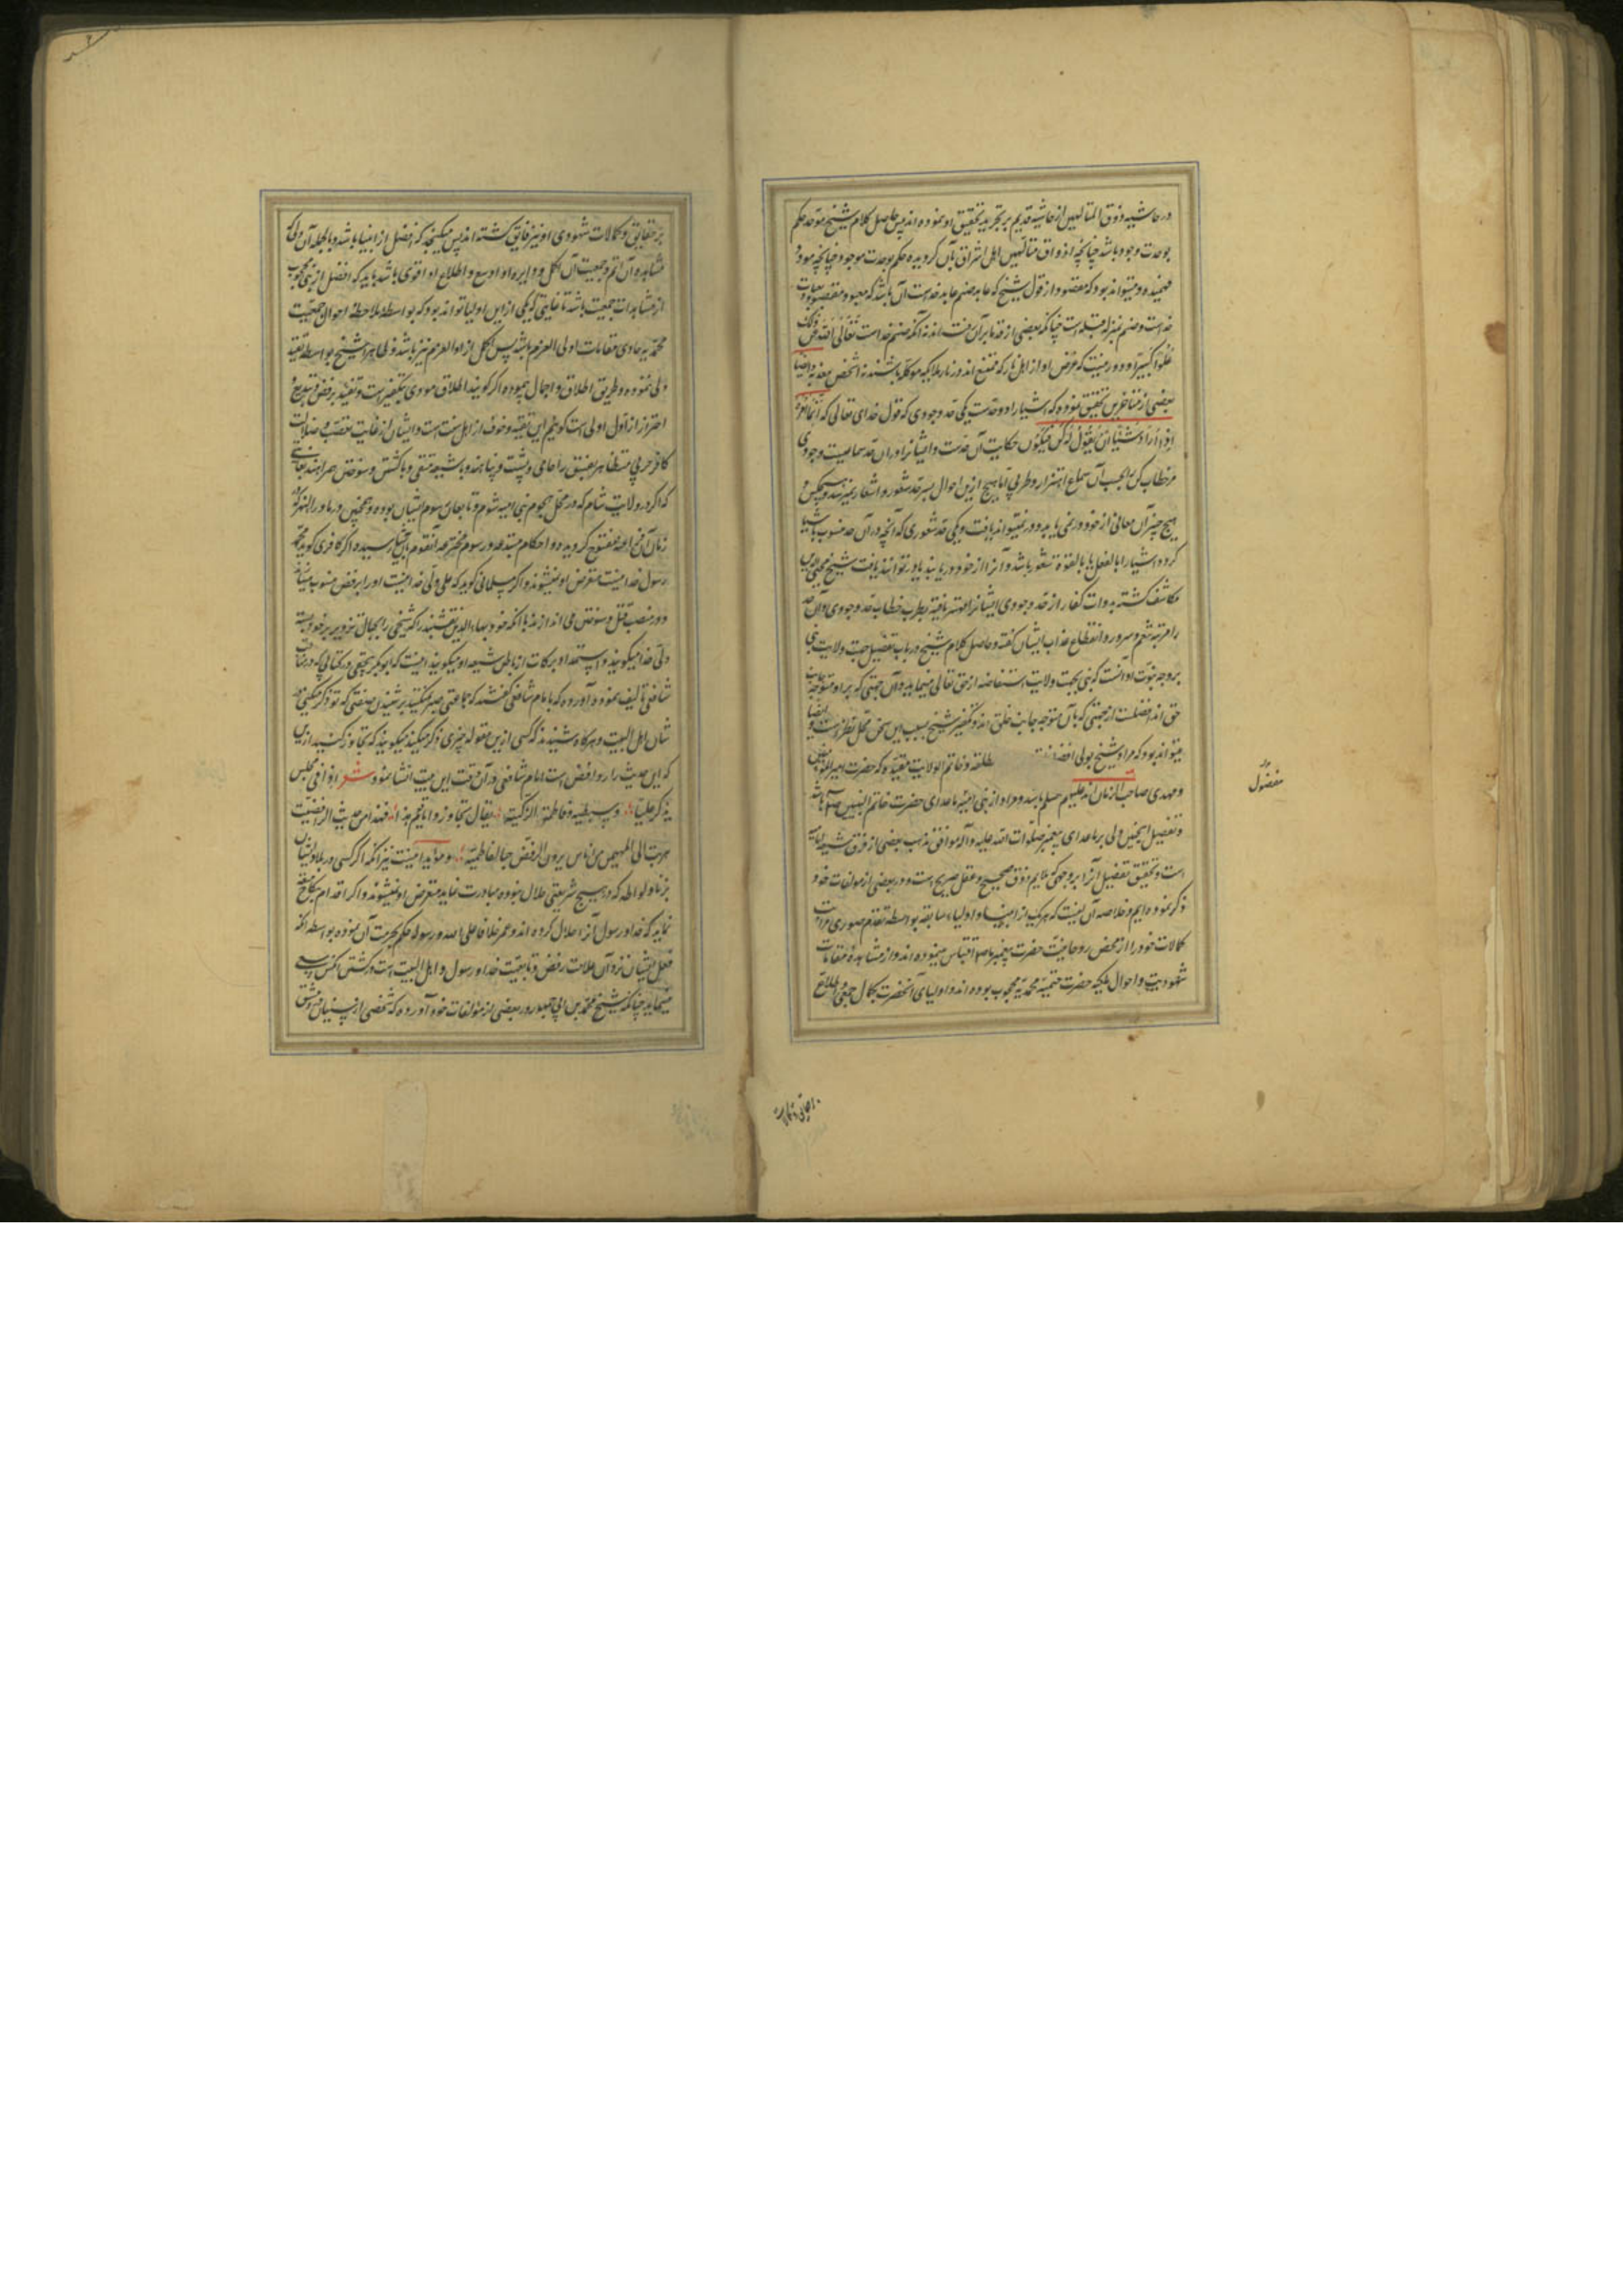 در حاشیه ذوق المتالهین از حاشیه قدیم بر تجرید تحقیق او نموده اند پس حاصل کلام شیخ موحد حکم
بوحدت وجود باشد چنانچه اذواق متالهین اهل اشراق بآن گردیده حکم بوحدت موجود چنانچه
فهمیده و میتواند بود که مقصود از قول شیخ که عابد صنم عابد خداست آن باشد که معبود و مقصود
خداست و صنم بمنزله قبله است چنانکه بعضی از قدما بر آن رفته اند نه آنکه صنم خداست تعالی الله عن ذلک
علوا کبیرا و دور نیست که غرض او از اهل نار که متنعم اند در نار ملایکه موکله باشند نه اشخاص معذبه و ایضا
بعضی از متاخرین تحقیق نموده که اشیا را دو حدست یکی حد وجودی که قول خدای تعالی که انما امره
اذا اراد شیئا ان یقول له کن فیکون حکایت آن حدست و ایشانرا در آن حد وجودی
مر خطاب کن را بحسب آن سماع اهتزاز و طربی اما هیچ ازین احوال بسرحد شعور و اشعار نمیرسد و هیچکس و
هیچ چیز آن معانی از خود در نمی یابد و در نمیتواند یافت و یکی حد شعوری که آنچه در آن حد منسوب باشیا
گردد اشیا را بالفعل یا بالقوه شعور باشد و آنرا از خود دریابند یا در توانند یافت شیخ محیی الدین
مکاشف گشته بدوات کفار از حد وجودی ایشانرا مهتز یافته بطرب خطاب حد وجودی و آن حد
را مرتبه تنعم و سرور و انقطاع عذاب ایشان گفته و حاصل کلام شیخ در باب تفضیل جهت ولایت نبی
بر وجه نبوت او آنست که نبی بجهت ولایت استفاضه از حق تعالی مینماید و آن جهتی که بر او متوجه جانب
حق اند افضلست از جهتی که بآن متوجه جانب خلق اند و تکفیر شیخ بسبب این سخن محل نظر است و ایضا
میتواند بود که مراد شیخ بولی افضل مطلقه و خاتم الولایت مقیده که حضرت امیرالمؤمنین
و مهدی صاحب الزمان اند علیهم السلم باشد و مراد از نبی انبیاء ماعدای حضرت خاتم النبیین صلعم باشد
و تفضیل اینچنین ولی بر ماعدای پیغمبر صلوات الله علیه و آله موافق مذهب بعضی از فرق شیعه امامیه
است و تحقیق تفضیل آنرا بر وجهی که ملایم ذوق صحیح و عقل صریح است و در بعضی از مولفات خود
ذکر نموده ایم و خلاصه آن اینست که هر یک از انبیا و اولیاء سابقه بواسطه تقدم صوری ذات
کمالات خود را از محض روحانیت حضرت پیغمبر ما صلعم اقتباس مینموده اند و از مشاهده مقامات
شهودیت و احوال ملکیه حضرت ختمیه محمدیه محجوب بوده اند و اولیای آنحضرت بکمال جمعی و اطلاع
مفضول
بر حقایق و کمالات
بر حقایق و کمالات شهودی او نیز فایق گشته اند پس میگنجد که افضل از انبیا باشد و بالجمله آن ولی که
مشاهده آن اتم و جمعیت آن اکمل و دایره او اوسع و اطلاع او اقوی باشد باید که افضل از نبی محجوب
از مشاهدات جمعیت باشد تا غایتی که یکی از این اولیا تواند بود که بواسطه ملاحظه احوال جمعیت
محمدیه حاوی مقامات اولی العزم باشد پس اکمل از اولو العزم نیز باشد و ظاهرا شیخ بواسطه تقیه
ولی نموده و طریق اطلاق و اجمال پیموده اگر گویند اطلاق مودی بتکفیر است و تقیید برفض و تشیع و
احتراز از اول اولی است گوئیم این تقیه و خوف از اهل سنت است و ایشان از غایت تعصب و ضلالت
کافر حربی متظاهر بفسق را حامی و پشت و پناهند و با شیعه متقی و با کشتن و سوختن همراهند
که اگر در ولایت شام که در محل هجوم بنی امیه شوم و تابعان سوم ایشان بوده و همچنین در ماوراءالنهر که
زمان آن فتح المه مفتوح گردیده و احکام مبتدعه و رسوم مخترعه آنقوم بآنجا رسیده اگر کافری گوید محمد
رسول خدا نیست متعرض او نمیشوند و اگر مسلمانی گوید که علی ولی خداست او را برفض منسوب میسازند
و در منصب قتل و سوختن می اندازند با آنکه خود بهاءالدین نقشبند را که شیخی را بحبال تزویر بر خود بسته
ولی خدا میگویند و استمداد برکات از باطن میگویند اینست که ابوبکر بیهقی در کتابی که در مناقب
شافعی تالیف نموده آورده که با امام شافعی گفتند که جماعتی صبر نمیکنند بر شنیدن منقبتی که تو ذکر میکنی در
شان اهل البیت و هرگاه شنیدند که کسی ازین مقوله چیزی ذکر میکند میگویند که تجاوز کنید ازین
که این حدیث را روافض است امام شافعی در آن وقت این بیت انشا نمود شعر اذا فی مجلس
یذکر علیا و سبطیه و فاطمة الزکیة یقال تجاوزوا یا قوم هذا فهذا من حدیث الرافضیة
هربت الی المهیمن من اناس یرون الرفض حب الفاطمیة و موید اینست نیز آنکه اگر کسی در بلاد ایشان
بزنا و لواطه که در هیچ شریعتی حلال نبوده مبادرت نماید متعرض او نمیشوند و اگر اقدام بنکاح متعه
نماید که خدا و رسول آنرا حلال کرده اند و عمر خلافا علی الله و رسوله حکم بحرمت آن نموده بواسطه آنکه
فعل ایشان نزد آن علامت رفض و تابعیت خدا و رسول و اهل البیت است در کشتن آنکس سعی
مینمایند چنانکه شیخ محمد بن ابی جمهور در بعضی از مؤلفات خود آورده که شخصی از سنیان دمشق